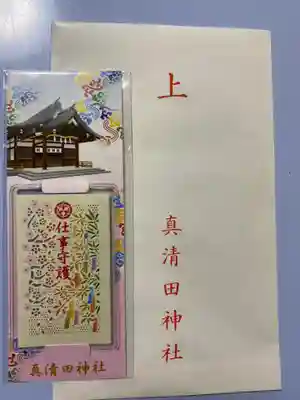 仕事守護
真清田神社
上
真清田神社